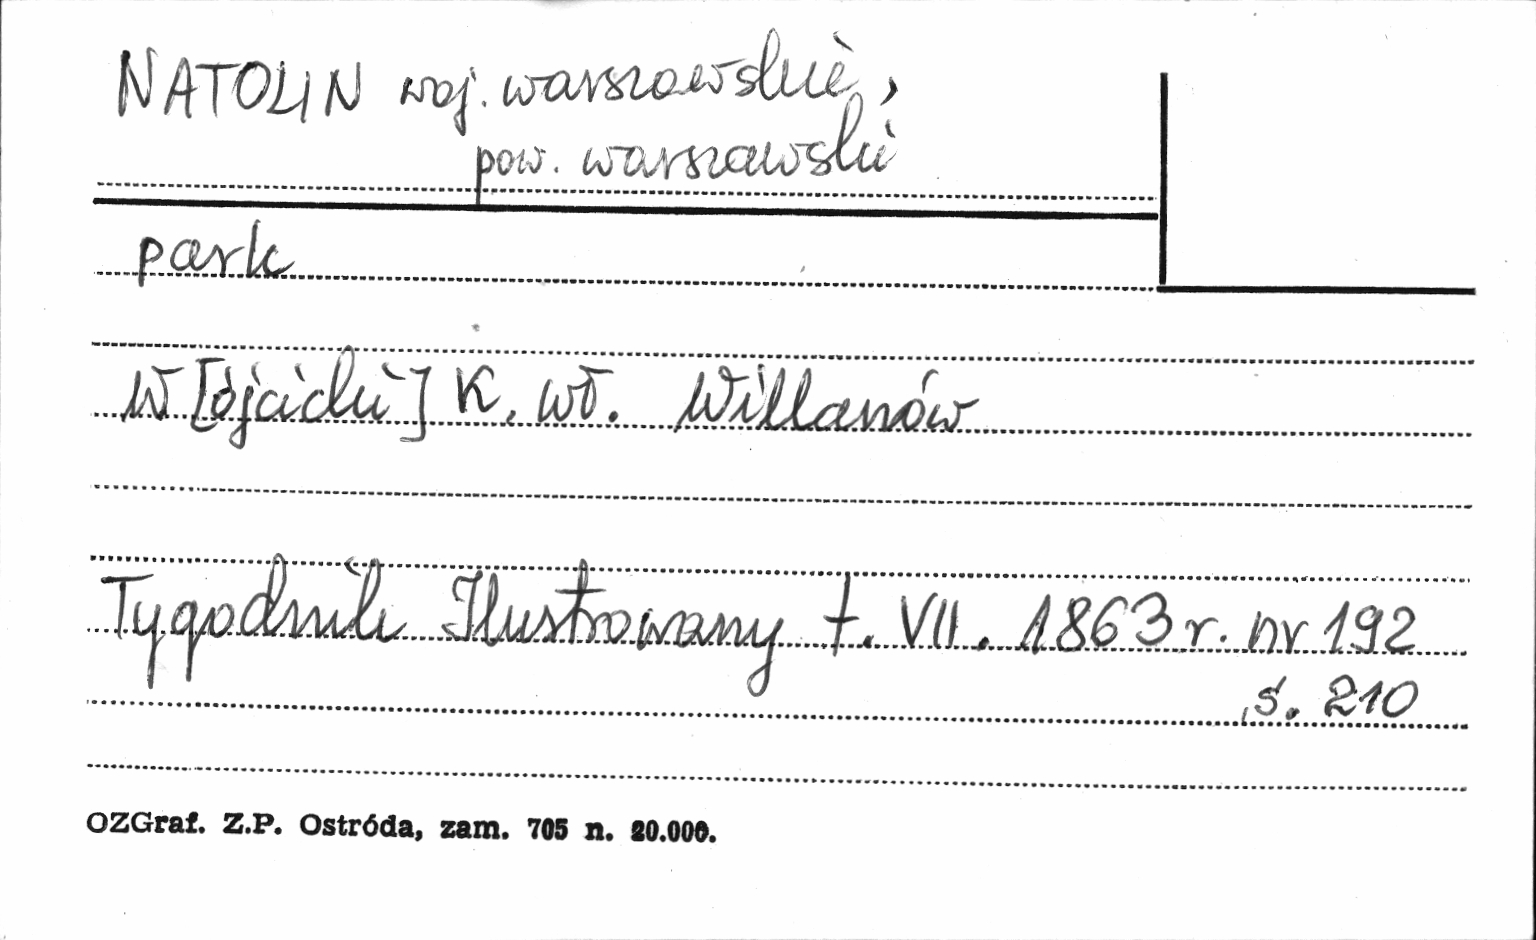 NATOLIN woj. warszawskie,
pow. warszawski
park
W[ójcicki] K. Wł. Willanów
Tygodnik Ilustrowany t. VII. 1863 r. nr 192
s. 210
OZGraf. Z.P. Ostróda, zam. 705 n. 20.000.